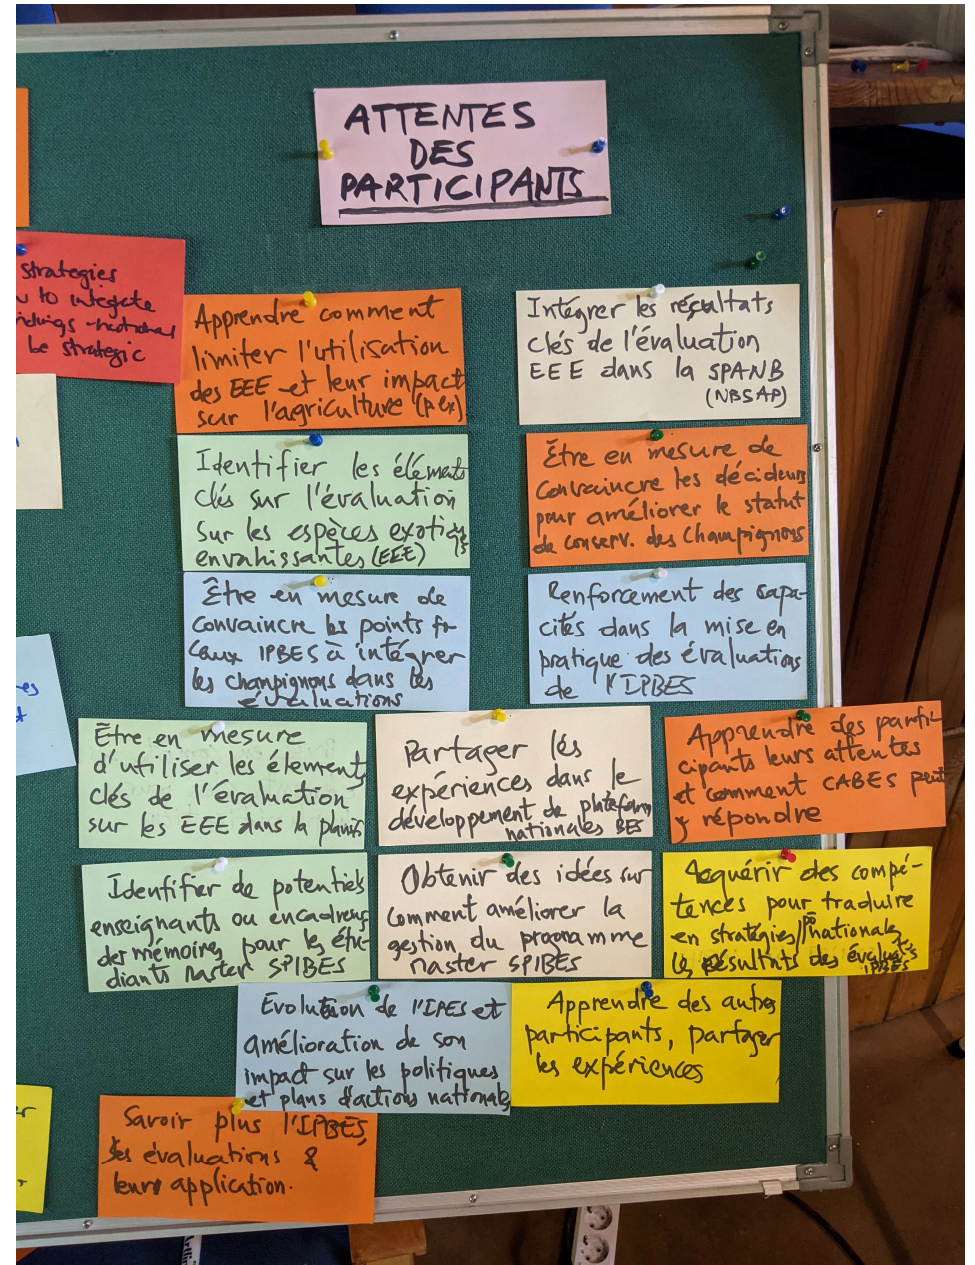 ATTENTES
DES
PARTICIPANTS
strategies
to integrate
be strategic
Apprendre comment
limiter l'utilisation
des EEE et leur impact
sur l'agriculture (p ex)
Intégrer les résultats
clés de l'évaluation
EEE dans la SPANB
(NBSAP)
Identifier les éléments
clés sur l'évaluation
sur les espèces exotiqs
envahissantes (EEE)
Être en mesure de
convaincre les décideurs
pour améliorer le statut
de conserv. des champignons
Être en mesure de
convaincre les points fo-
caux IPBES à intégrer
les champignons dans les
évaluations
Renforcement des capa-
cités dans la mise en
pratique des évaluations
de l'IPBES
Être en mesure
d'utiliser les élements
clés de l'évaluation
sur les EEE dans la planif
Partager les
expériences dans le
développement de plateform
nationales BES
Apprendre des parti-
cipants leurs attentes
et comment CABES peut
y répondre
Identifier de potentiels
enseignants ou encadreurs
des mémoires pour les étu-
diants Master SPIBES
Obtenir des idées sur
comment améliorer la
gestion du programme
Master SPIBES
Acquérir des compé-
tences pour traduire
en stratégies/po nationales
les résultats des évaluat°s
IPBES
Evolution de l'IPES et
amélioration de son
impact sur les politiques
et plans d'actions nationals
Apprendre des autres
participants, partager
les expériences
Savoir plus l'IPBES,
ses évaluations &
leurs application.